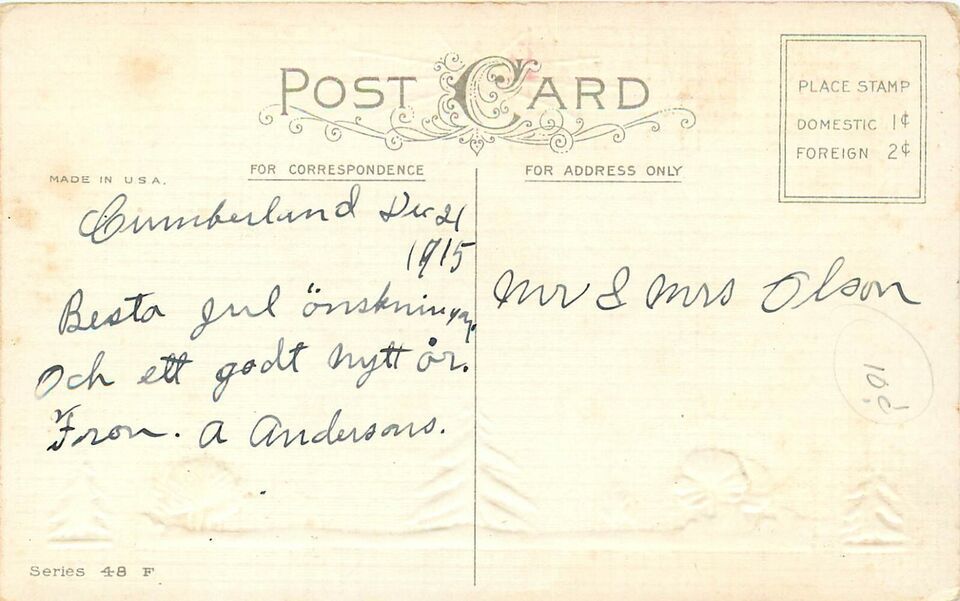 POST CARD
PLACE STAMP
DOMESTIC 1¢
FOREIGN 2¢
FOR CORRESPONDENCE
FOR ADDRESS ONLY
MADE IN U.S.A.
Cumberland Dec 21
1915
Besta Jul önskningar.
Och ett godt Nytt år.
From. A Andersons.
Mr & Mrs Olson
10¢
Series 48 F